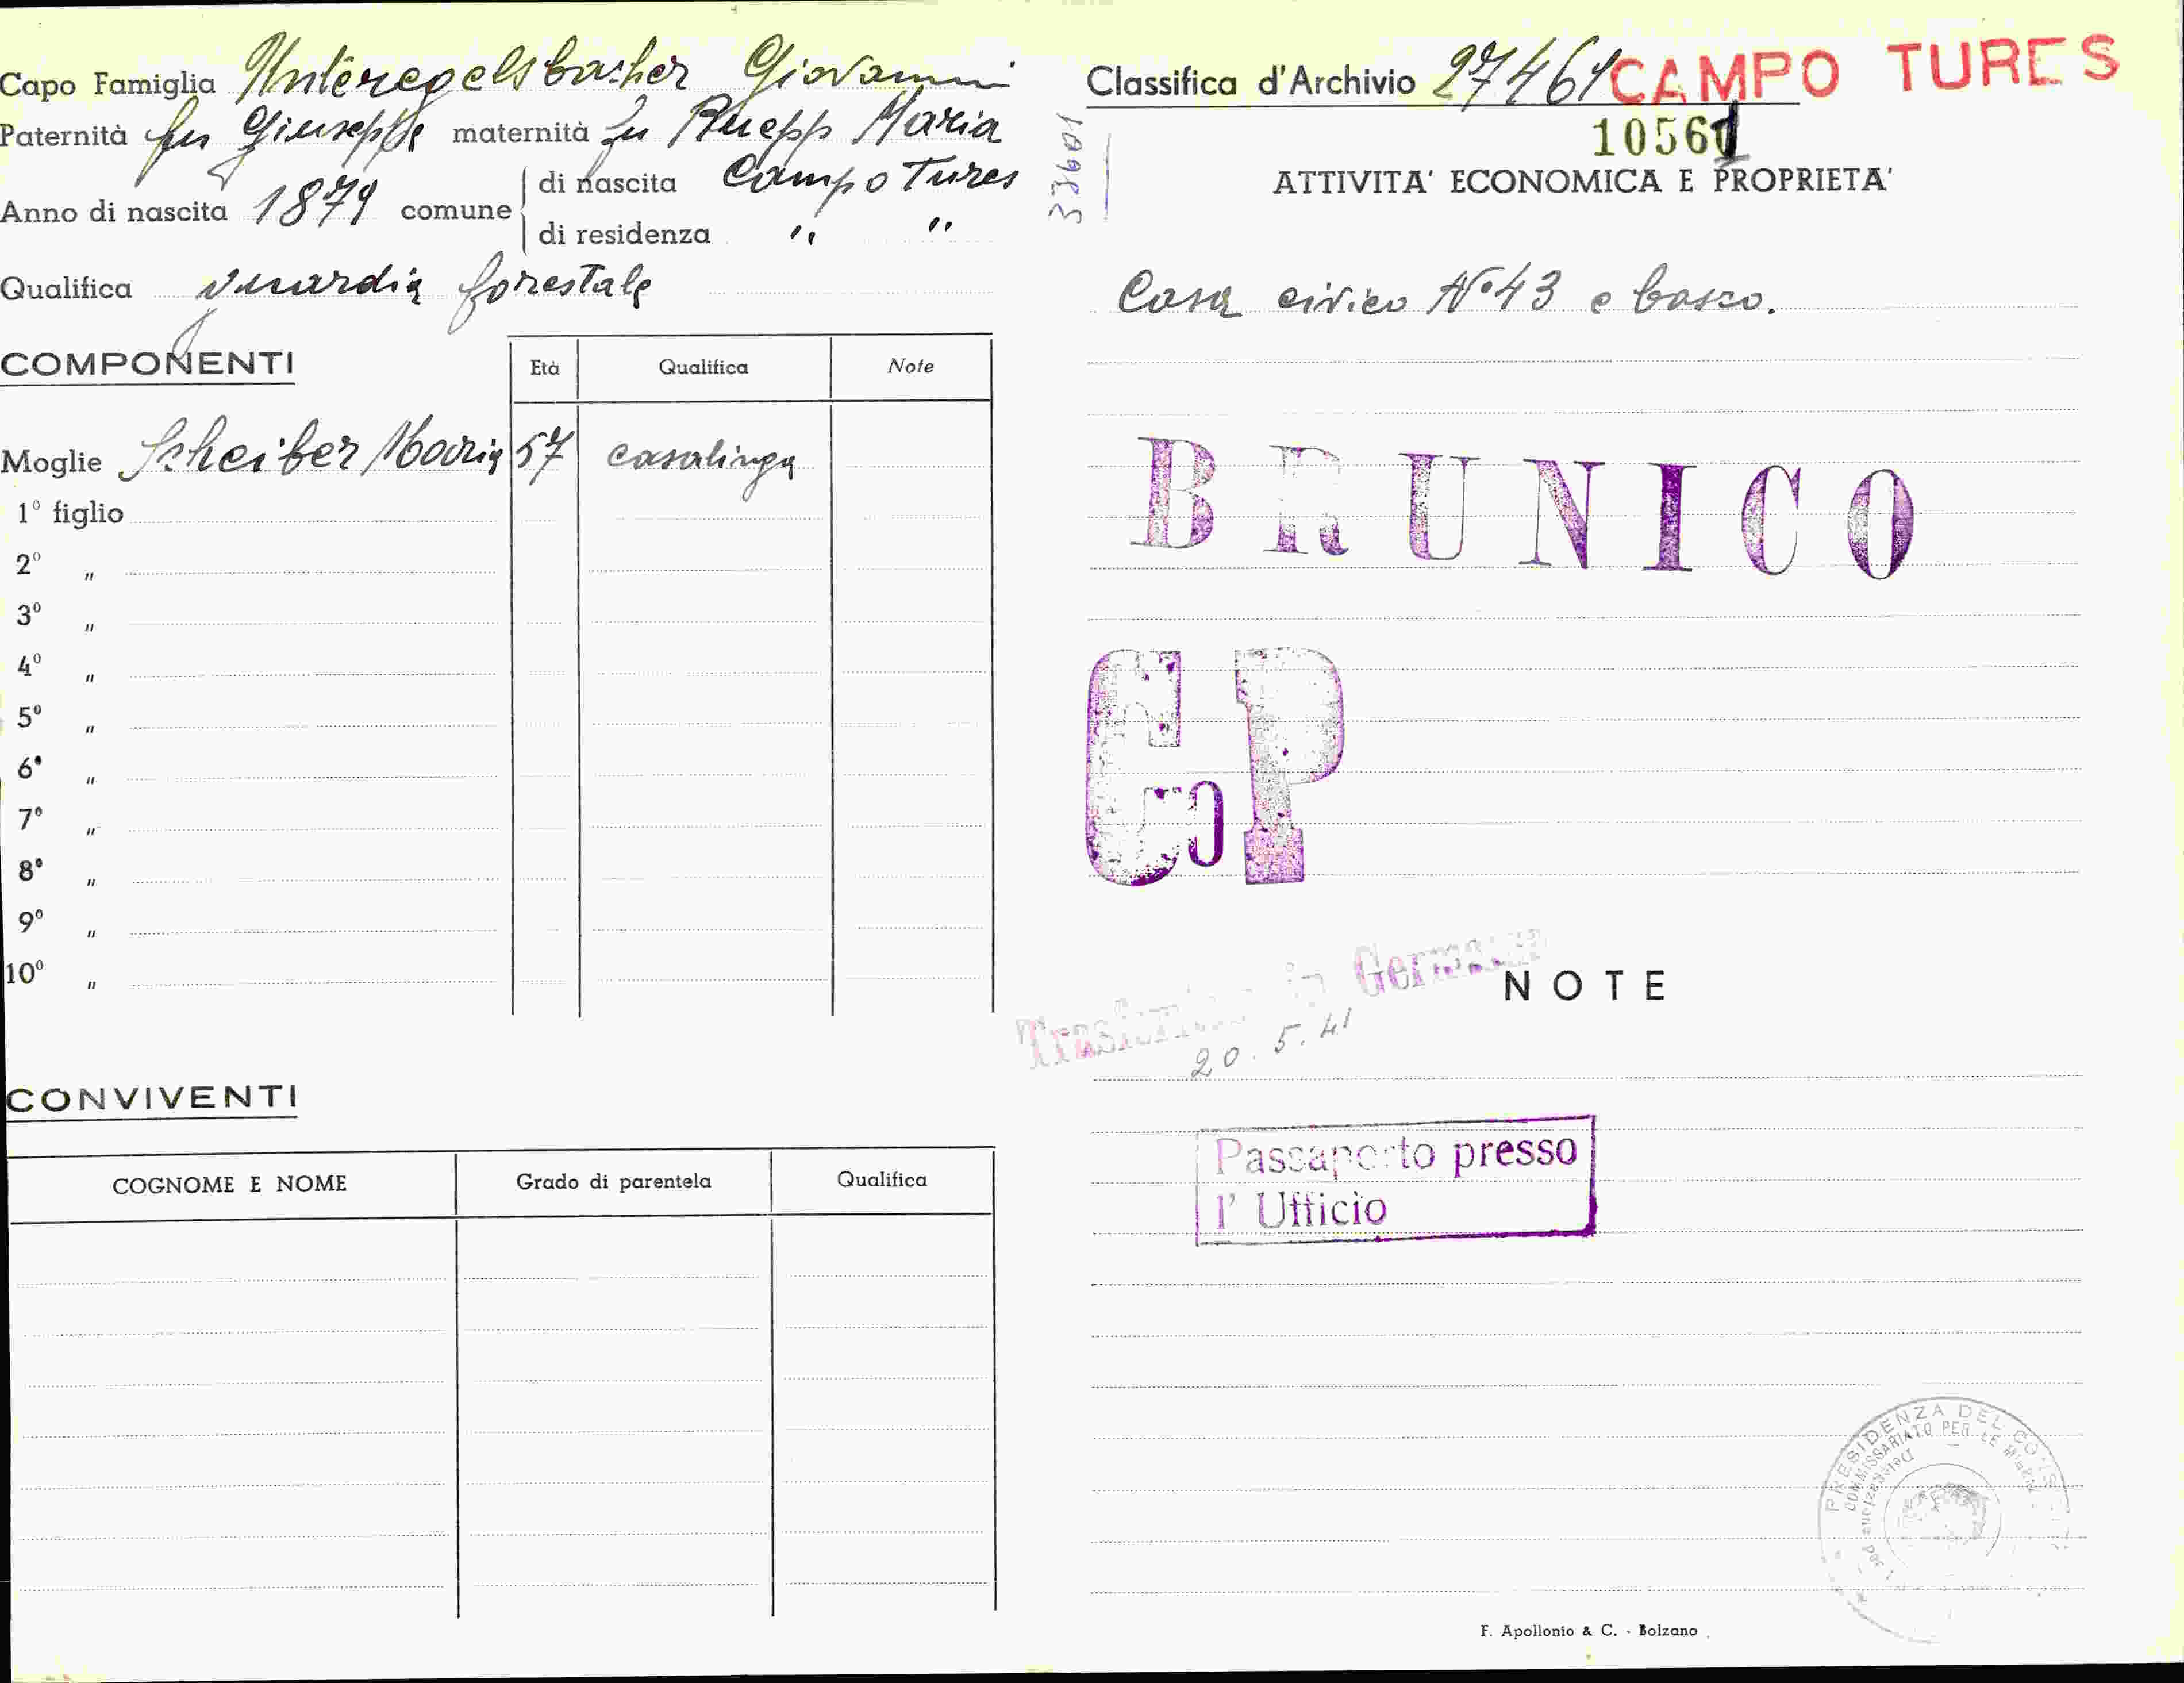 Capo Famiglia Unteregelsbacher Giovanni
Paternità fu Giuseppe maternità fu Ruepp Maria
Anno di nascita 1879 comune
di nascita Campo Tures
di residenza " "
Qualifica guardia forestale
COMPONENTI
Età Qualifica Note
Moglie Scheiber Maria 57 casalinga
1º figlio
2º "
3º "
4º "
5º "
6º "
7º "
8º "
9º "
10º "
CONVIVENTI
COGNOME E NOME Grado di parentela Qualifica
33601
Classifica d'Archivio 27461 CAMPO TURES
10561
ATTIVITA' ECONOMICA E PROPRIETA'
Casa civico Nº 43 e bosco.
BRUNICO
G P
Trasferito in Germania
20. 5. 41
NOTE
Passaporto presso
l' Ufficio
PRESIDENZA DEL CONS
COMMISSARIATO PER LE MIGRA
Delegazione per
F. Apollonio & C. - Bolzano